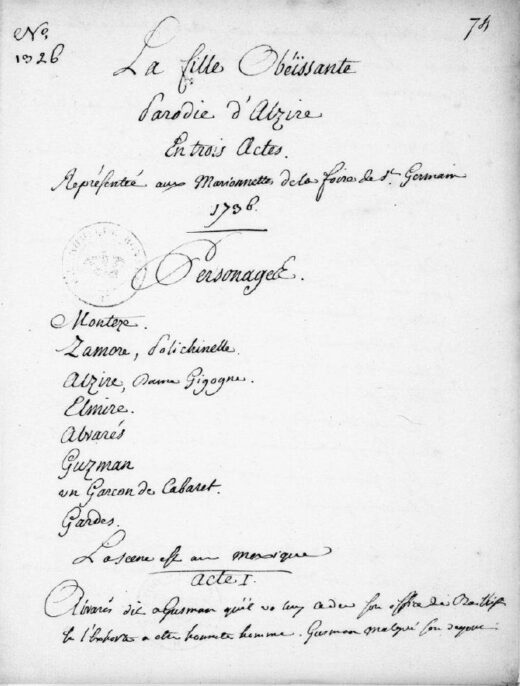 No.
1326
74
La fille Obéïssante
Parodie d'Alzire
En trois Actes.
Représentée aux Marionnettes de la foire de St Germain
1736.
Personages.
Monteze.
Zamore, Polichinelle.
Alzire, Dame Gigogne.
Elmire.
Alvarés
Guzman
un Garcon de Cabaret.
Gardes.
La scene est au mexique
Acte I.
Alvarés dit a Gusman qu'il va luy ceder son office de
et l'exhorte a etre honnete homme. Gusman malgré son